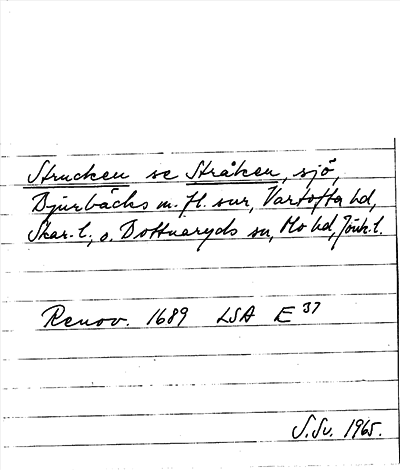 Strucken se Stråken, sjö,
Djurbäcks m. fl. snr, Vartofta hd,
Skar. l., o. Bottnaryds sn, Mo hd, Jönk. l.
Renov. 1689 LSA E 37
S. Sv. 1965.